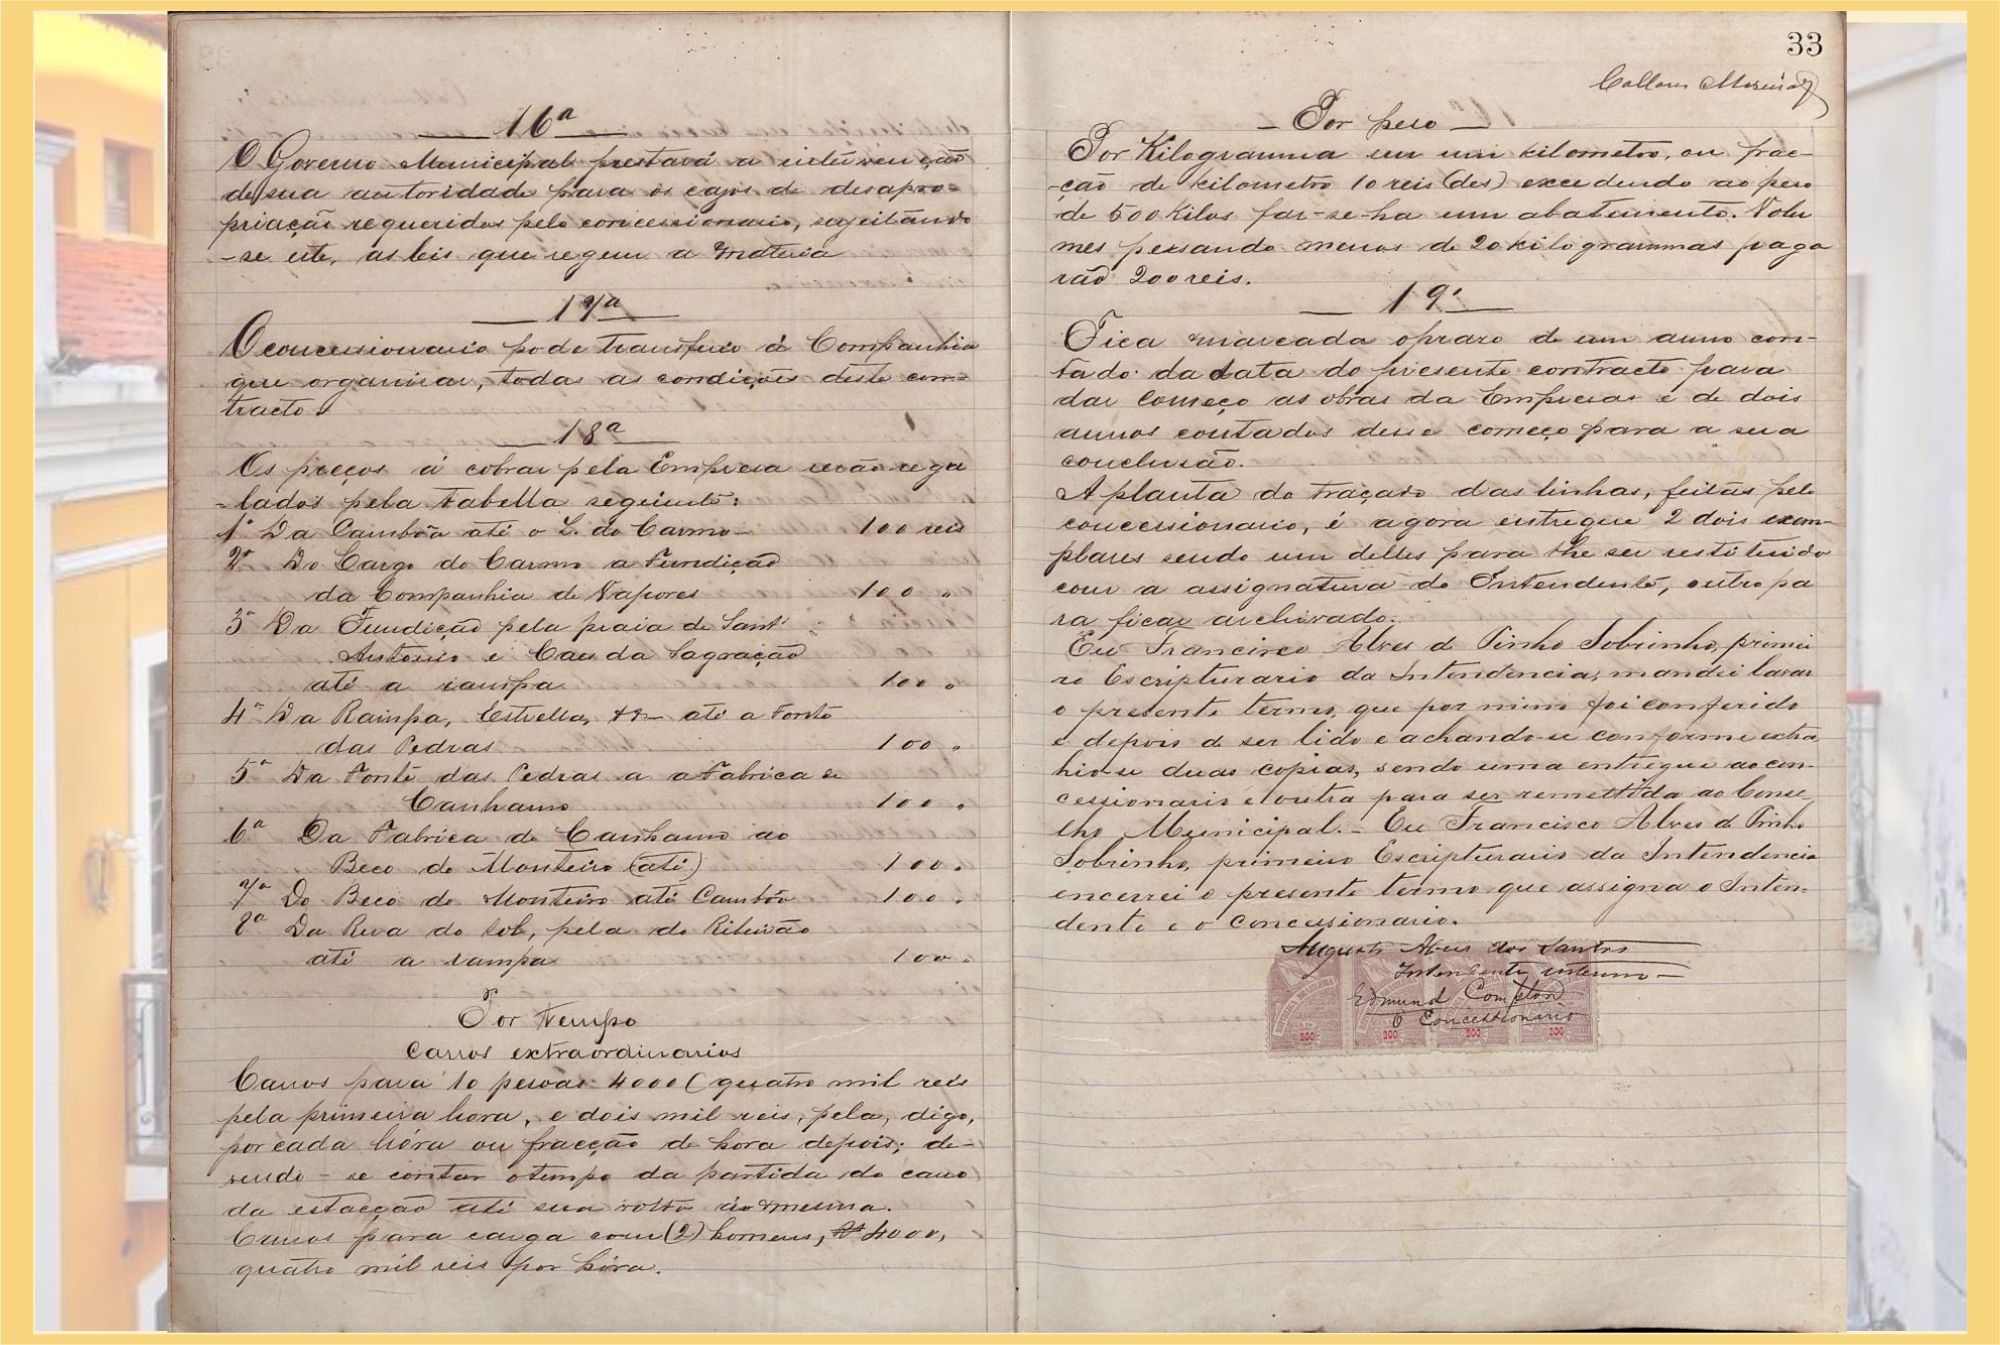 16ª
O Governo Municipal prestará a intervenção
de sua autoridade para os casos de desapro-
priação requeridos pelo concessionario, sujeitando
-se este, as leis que regem a materia
17ª
O concessionario pode transferir á Companhia
que organisar, todas as condições deste con-
tracto.
18ª
Os preços á cobrar pela Empresa serão regu
-lados pela tabella seguinte:
1ª Da Cambôa até o L. do Carmo 100 reis
2ª Do Largo do Carmo a Fundição
da Companhia de Vapores 100 "
3ª Da Fundição pela praia de Sant'
Antonio e Caes da Sagração
até a rampa 100 "
4ª Da Rampa, Estrella, &&- até a Fonte
das Pedras 100 "
5ª Da Fonte das Pedras a a Fabrica de
Canhamo 100 "
6ª Da Fabrica de Canhamo ao
Beco do Monteiro (até) 100 "
7ª Do Beco do Monteiro até Cambôa 100 "
8ª Da Rua do Sol, pela do Ribeirão
até a rampa 100 "
Por Tempo
Carros extraordinarios
Carros para 10 pessoas 4000 (quatro mil reis
pela primeira hora, e dois mil reis, pela, digo,
por cada hóra ou fracção de hora depois; de-
vendo-se contar o tempo da partida do carro
da estacção até sua volta áo mesma.
Carros para carga com (2) homens, 4000,
quatro mil reis por hóra.
33
- Por peso -
Por Kilogramma em um kilometro, ou frac-
-ção de kilometro 10 reis (des) excedendo ao peso
de 500 Kilos far-se-ha um abatimento. Volu
mes pessando menos de 20 kilogrammas paga
rão 200 reis.
19ª
Fica marcada o praso de um anno con-
tado da data do presente contracto para
dar começo as obras da Empresa e de dois
annos contados desse começo para a sua
conclusão.
A planta do traçado das linhas, feitas pelo
concessionario, é agora entregue 2 dois exem-
plares sendo um delles para lhe ser restituido
com a assignatura do Intendente, outro pa
ra ficar archivado.
Eu Francisco Alves de Pinho Sobrinho, primei
ro Escripturario da Intendencia, mandei lavrar
o presente termo, que por mim foi conferido
e depois de ser lido e achando-se conforme extra
hio-se duas copias, sendo uma entregue ao con-
cessionario e outra para ser remettida ao Conse-
lho Municipal. - Eu Francisco Alves de Pinho
Sobrinho, primeiro Escripturario da Intendencia
encerrei o presente termo que assigna o Inten-
dente e o concessionario.
Augusto Alves dos Santos
Intendente interino
Edmund Compton
O Concessionario
200 200 200 200